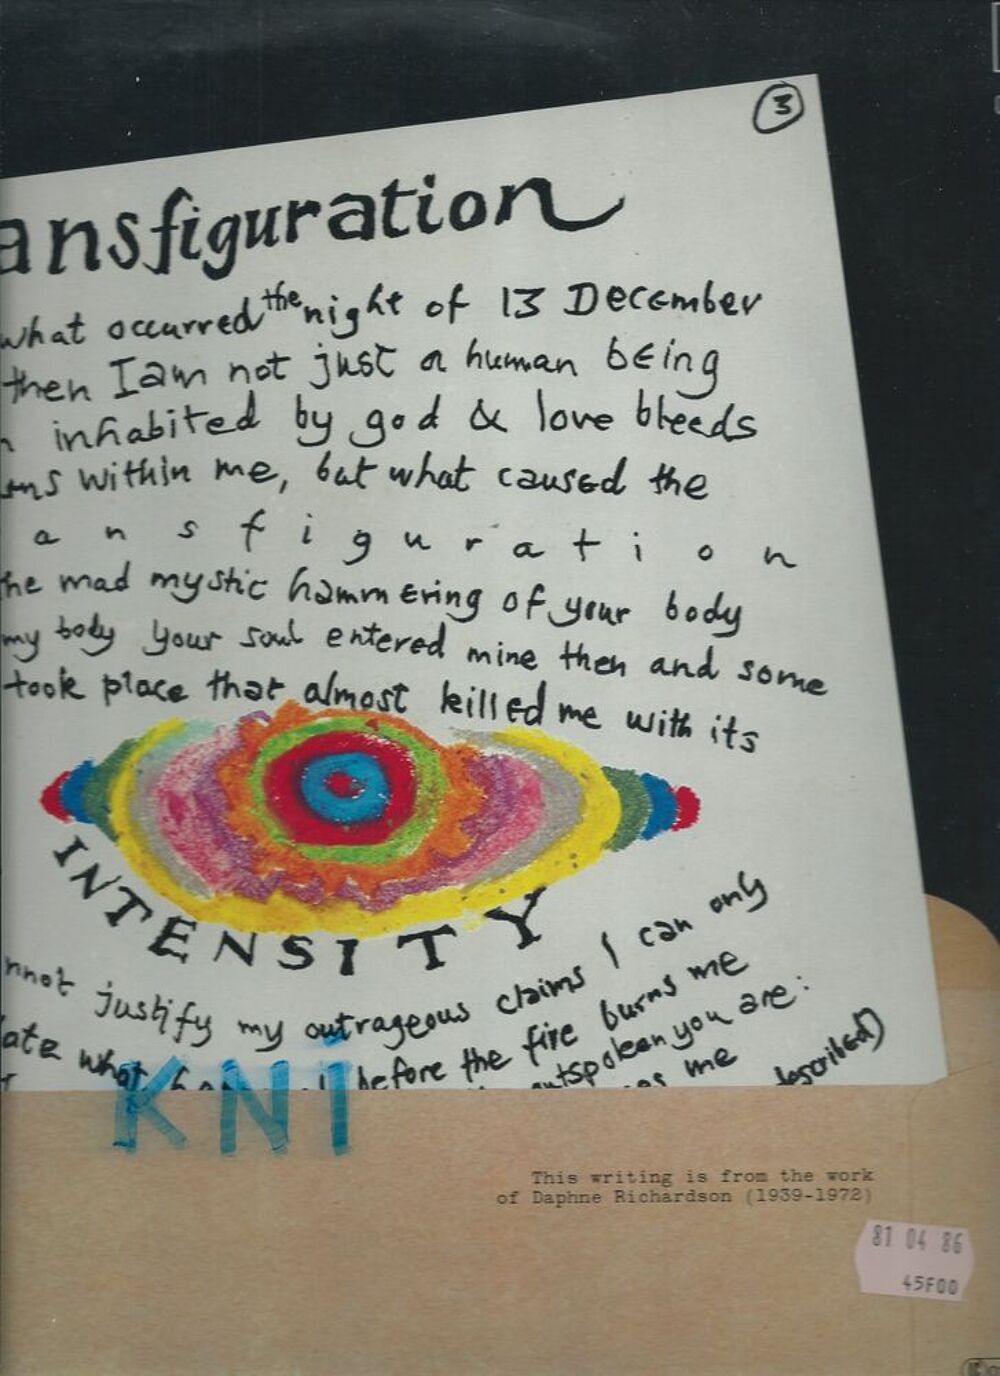 3
ansfiguration
what occurred the night of 13 December
then I am not just a human being
inhabited by god & love bleeds
within me, but what caused the
a n s f i g u r a t i o n
he mad mystic hammering of your body
my body your soul entered mine then and some
took place that almost killed me with its
INTENSITY
nnot justify my outrageous claims I can only
ate what before the fire burns me
outspoken you are:
me described)
KNi
This writing is from the work
of Daphne Richardson (1939-1972)
81 04 86
45F00